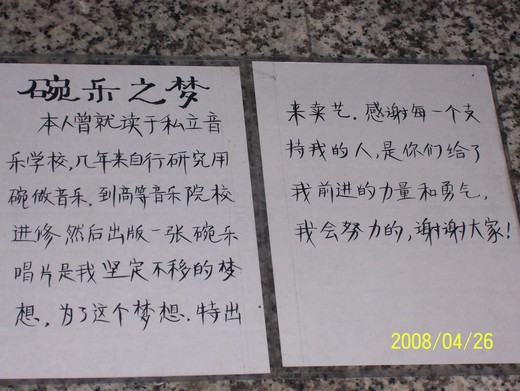 碗乐之梦
本人曾就读于私立音
乐学校,几年来自行研究用
碗做音乐.到高等音乐院校
进修然后出版一张碗乐
唱片是我坚定不移的梦
想,为了这个梦想.特出
来卖艺.感谢每一个支
持我的人,是你们给了
我前进的力量和勇气,
我会努力的,谢谢大家!
2008/04/26